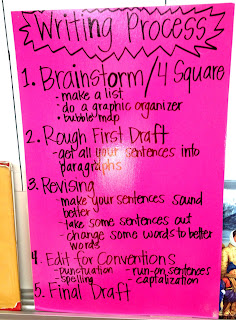 Writing Process
1. Brainstorm/4 Square
- make a list
- do a graphic organizer
• bubble map
2. Rough First Draft
- get all your sentences into
paragraphs
3. Revising
- make your sentences sound
better
- take some sentences out
- change some words to better
words
4. Edit for Conventions
- punctuation - run-on sentences
- spelling captalization
5. Final Draft